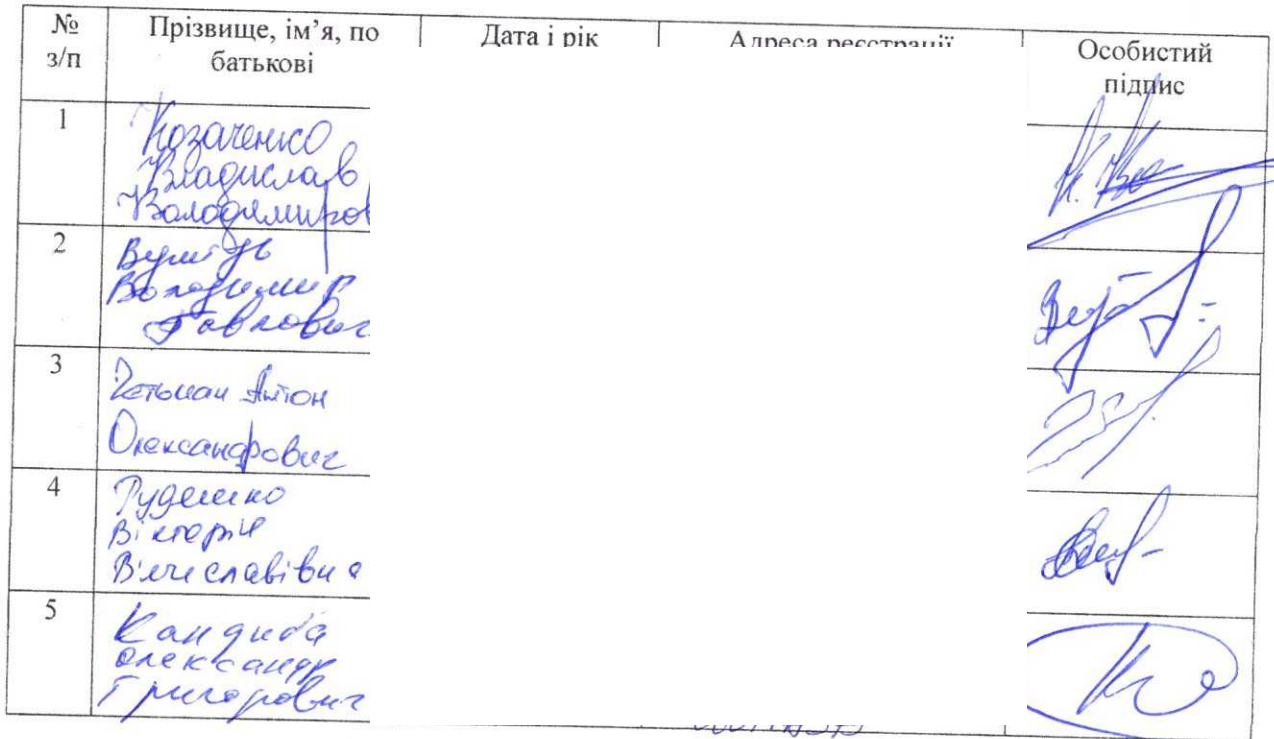 № з/п
Прізвище, ім’я, по батькові
Дата і рік
Адреса реєстрації
Особистий підпис
1
Козаченко
Владислав
Володимиров
2
Володимир
Павлович
3
Гетьман Антон
Олександрович
4
Руденко
Вікторія
В'ячеславівна
5
Кандиба
Олександр
Григорович